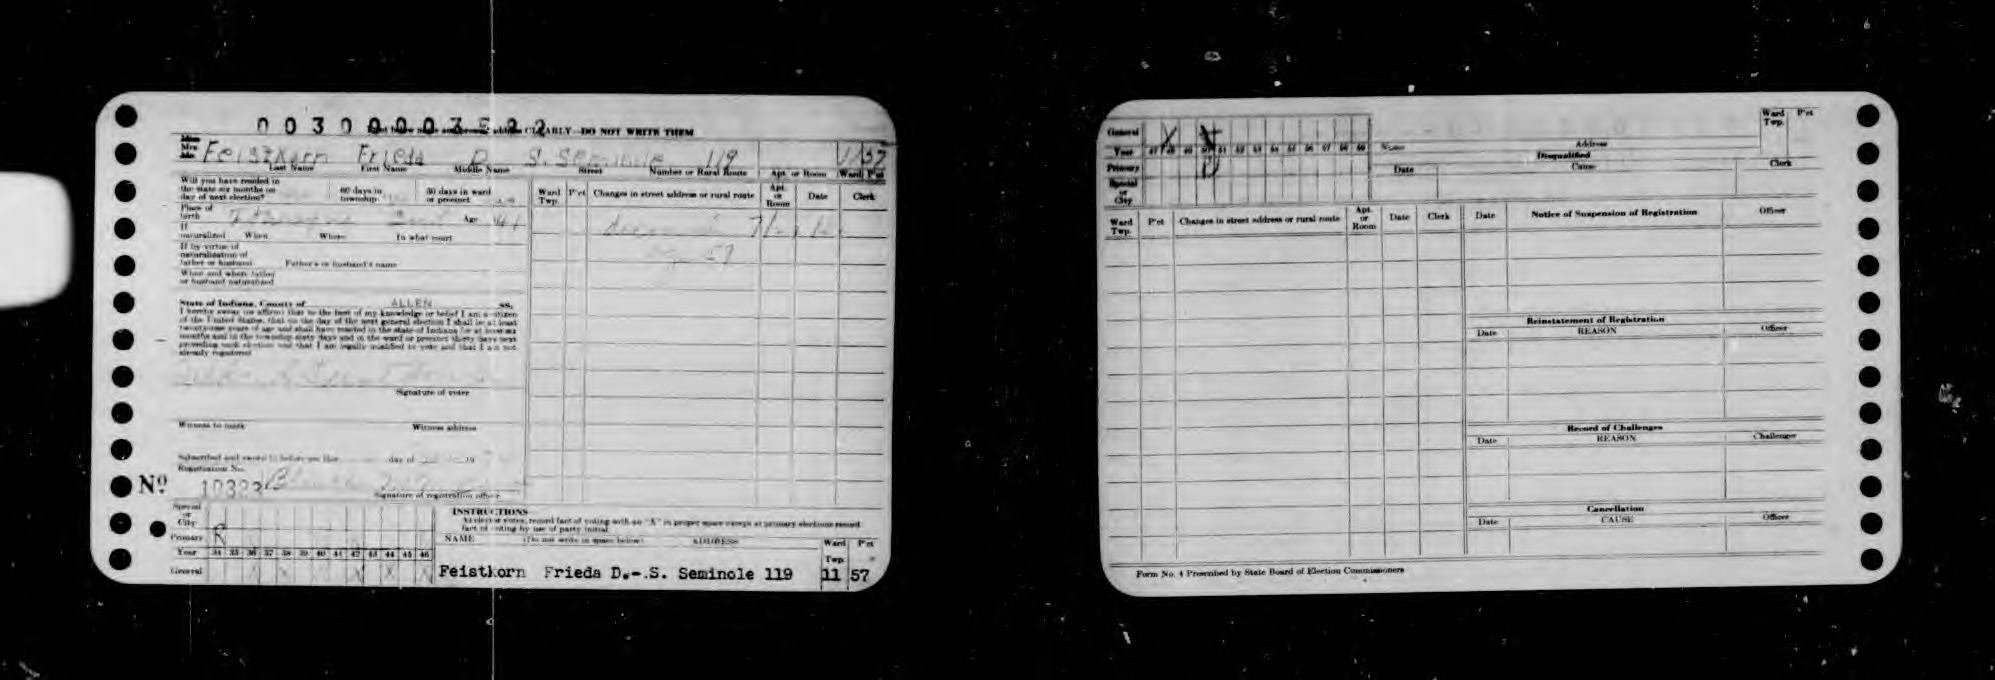 0 0 3 0 0 0 0 3 5 2 2
CLEARLY—DO NOT WRITE THEM
Miss
Mrs
Mr. Feistkorn Frieda D S. Seminole 119 57
Last Name First Name Middle Name Street Number or Rural Route Apt. or Room Ward P'ct
Will you have resided in
the state six months on
day of next election?
60 days in
township
30 days in ward
or precinct
Ward
Twp.
P'ct
Changes in street address or rural route
Apt.
or
Room
Date
Clerk
Place of
birth Age
deceased
57
If
naturalized When Where In what court
If by virtue of
naturalization of
father or husband Father's or husband's name
When and where father
or husband naturalized
State of Indiana, County of ALLEN ss.
I hereby swear (or affirm) that to the best of my knowledge or belief I am a citizen
of the United States, that on the day of the next general election I shall be at least
twenty-one years of age and shall have resided in the state of Indiana for at least six
months and in the township sixty days and in the ward or precinct thirty days next
preceding such election and that I am legally qualified to vote and that I am not
already registered
Signature of voter
Witness to mark Witness address
Subscribed and sworn to before me this day of 19
Registration No.
Nº 10323
Signature of registration officer
Special
or
City
Primary R
Year 34 35 36 37 38 39 40 41 42 43 44 45 46
General X X X X X
INSTRUCTIONS
As elector votes, record fact of voting with an "X" in proper space except at primary elections record
fact of voting by use of party initial
NAME (Do not write in space below) ADDRESS
Ward
Twp.
P'ct
Feistkorn Frieda D.-.S. Seminole 119 11 57
General X X
Year 47 48 49 50 51 52 53 54 55 56 57 58 59
Primary
Special
or
City
Name Address
Ward
Twp.
P'ct
Disqualified
Date Cause Clerk
Ward
Twp.
P'ct
Changes in street address or rural route
Apt.
or
Room
Date
Clerk
Date Notice of Suspension of Registration Officer
Reinstatement of Registration
Date REASON Officer
Record of Challenges
Date REASON Challenger
Cancellation
Date CAUSE Officer
Form No. 4 Prescribed by State Board of Election Commissioners